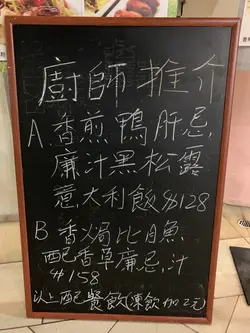 廚師推介
A.香煎鴨肝忌,
廉汁黑松露
意大利飯$128
B 香焗比目魚
配香草廉忌,汁
$158
以上配餐飲(凍飲加2元)